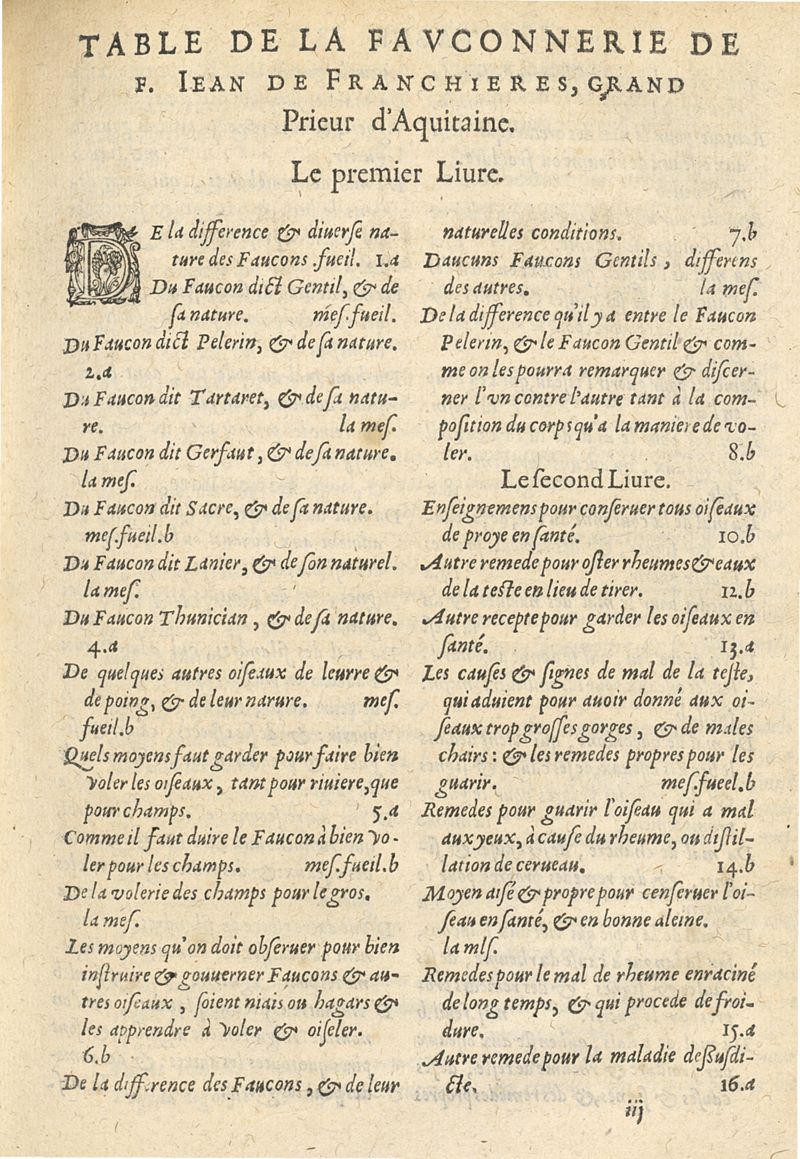 TABLE DE LA FAVCONNERIE DE
F. IEAN DE FRANCHIERES, GRAND
Prieur d'Aquitaine.
Le premier Liure.
DE la difference & diuerſe na-
ture des Faucons .fueil. 1.a
Du Faucon dict Gentil, & de
ſa nature. meſ.fueil.
Du Faucon dict Pelerin, & de ſa nature.
2.a
Du Faucon dit Tartaret, & de ſa natu-
re. la meſ.
Du Faucon dit Gerfaut, & de ſa nature.
la meſ.
Du Faucon dit Sacre, & de ſa nature.
meſ.fueil.b
Du Faucon dit Lanier, & de ſon naturel.
la meſ.
Du Faucon Thunician, & de ſa nature.
4.a
De quelques autres oiſeaux de leurre &
de poing, & de leur narure. meſ.
fueil.b
Quels moyens faut garder pour faire bien
voler les oiſeaux, tant pour riuiere, que
pour champs. 5.a
Comme il faut duire le Faucon à bien vo-
ler pour les champs. meſ.fueil.b
De la volerie des champs pour le gros.
la meſ.
Les moyens qu'on doit obſeruer pour bien
inſtruire & gouuerner Faucons & au-
tres oiſeaux, ſoient niais ou hagars &
les apprendre à voler & oiſeler.
6.b
De la difference des Faucons, & de leur
naturelles conditions. 7.b
Daucuns Faucons Gentils, differens
des autres. la meſ.
De la difference qu'il y a entre le Faucon
Pelerin, & le Faucon Gentil & com-
me on les pourra remarquer & diſcer-
ner l'vn contre l'autre tant à la com-
poſition du corps qu'a la maniere de vo-
ler. 8.b
Le second Liure.
Enſeignemens pour conſeruer tous oiſeaux
de proye en ſanté. 10.b
Autre remede pour oſter rheumes & eaux
de la teſte en lieu de tirer. 12.b
Autre recepte pour garder les oiſeaux en
ſanté. 13.a
Les cauſes & ſignes de mal de la teſte,
qui aduient pour auoir donné aux oi-
ſeaux trop groſſes gorges, & de males
chairs : & les remedes propres pour les
guarir. meſ.fueel.b
Remedes pour guarir l'oiſeau qui a mal
aux yeux, à cauſe du rheume, ou diſtil-
lation de cerueau. 14.b
Moyen aiſé & propre pour cenſeruer l'oi-
ſeau en ſanté, & en bonne aleine.
la mlſ.
Remedes pour le mal de rheume enraciné
de long temps, & qui procede de froi-
dure. 15.a
Autre remede pour la maladie deſſuſdi-
cte. 16.a
iij